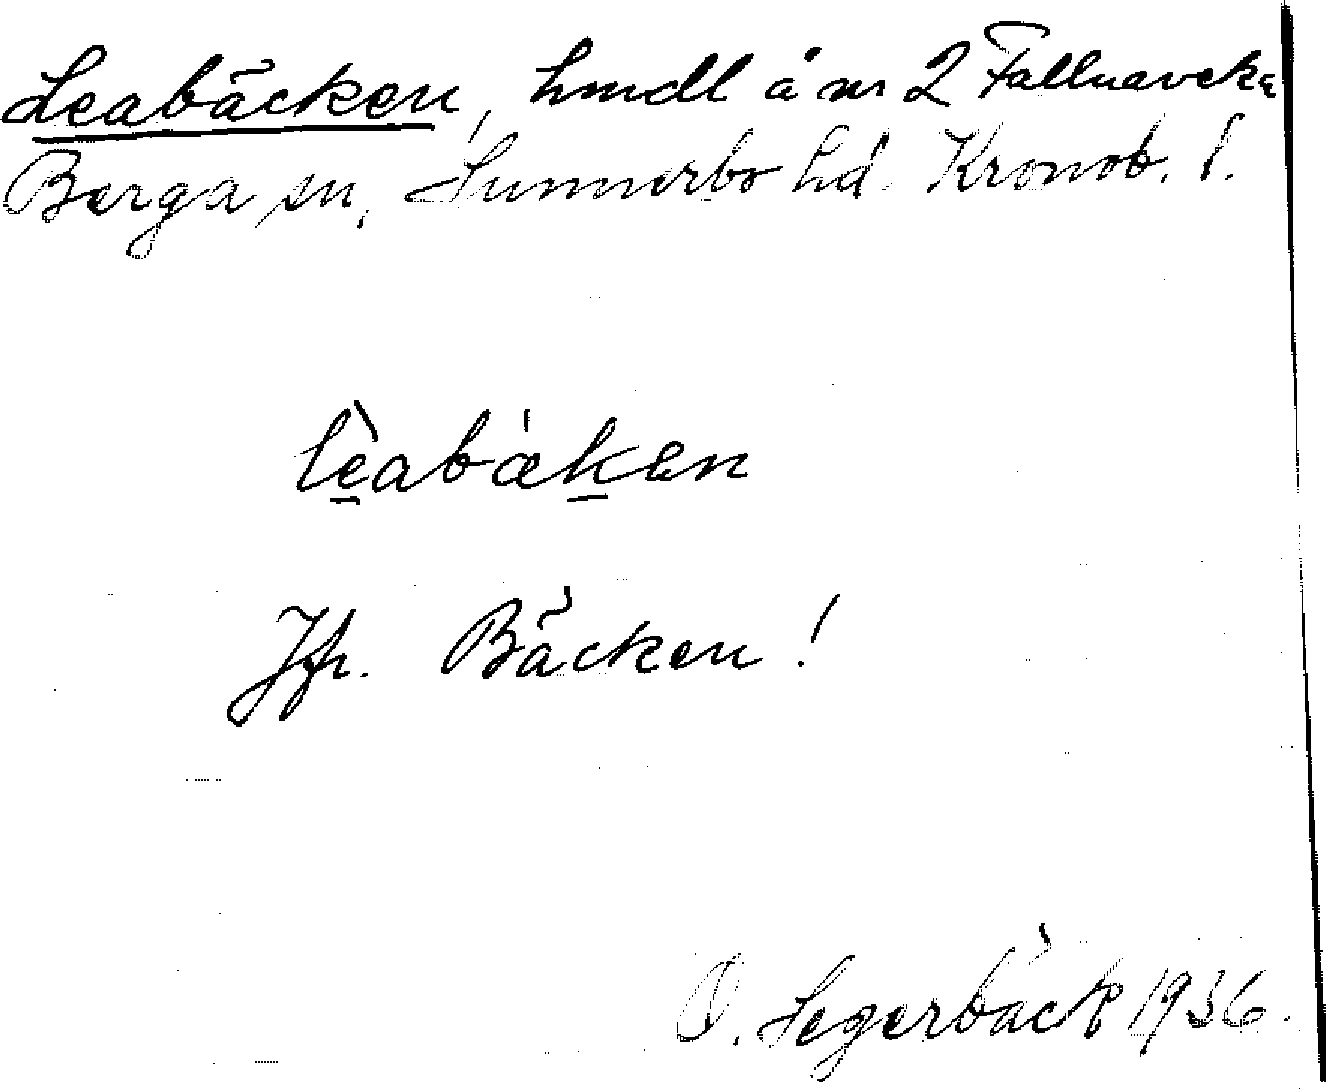 Leabäcken, hmdl å nr 2 Fallnaveka
Berga sn, Sunnerbo hd. Kronob. l.
lèabæken
Jfr. Bäcken!
O. Segerbäck 1936.